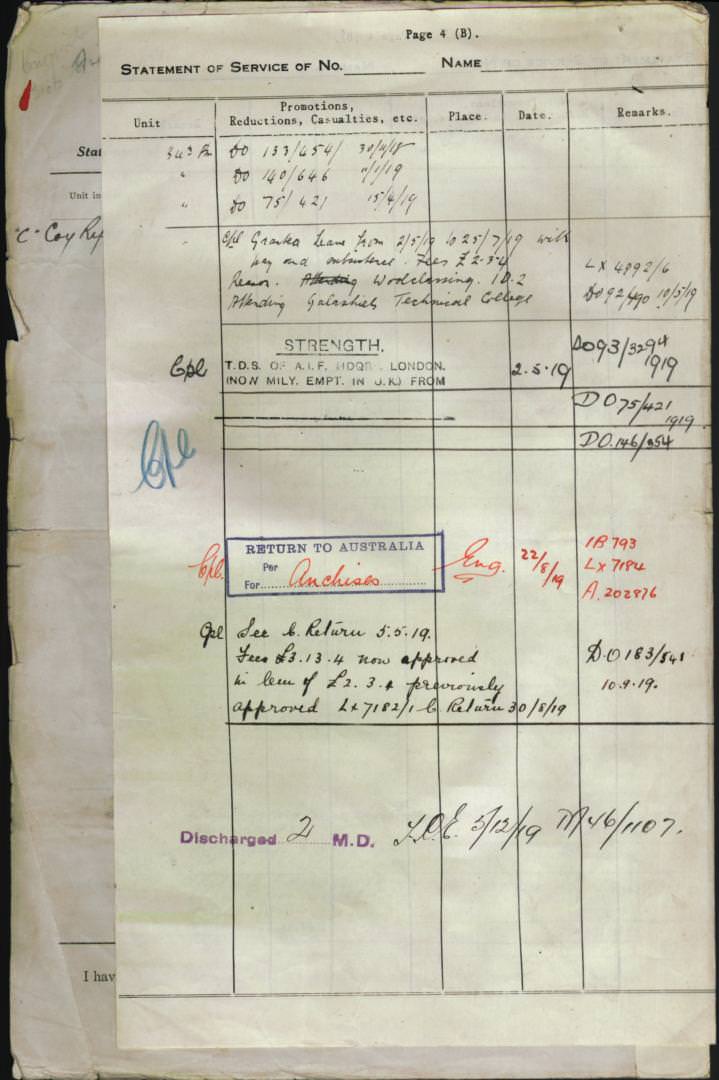 Page 4 (B).
STATEMENT OF SERVICE OF No. NAME
Unit Promotions, Reductions, Casualties, etc. Place. Date. Remarks.
Stat
Unit in
"C" Coy
34th Bn DO 133/454/ 30/11/18
" DO 140/646 "/1/19
" DO 75/421 15/4/19
" Cpl Granted Leave from 2/5/19 to 25/7/19 with
pay and subsistence. Fees £2-3-4 LX 4992/6
Reason. Attending Woolclassing. 1.D.2
Attending Galashiels Technical College DO 92/490 10/5/19
STRENGTH.
Cpl T.D.S. OF A.I.F. HDQRS. LONDON. 2.5.19 DO 93/3294
(NON MILY. EMPT. IN U.K.) FROM 1919
DO 75/421
1919
DO. 146/354
Cpl
RETURN TO AUSTRALIA
Per
For Anchises
Cpl. Eng. 22/8/19 1B 793
LX 7184
A. 202876
Cpl See C. Return 5.5.19.
Fees £3.13.4 now approved D.O 183/541
in lieu of £2.3.4 previously 10.9.19.
approved LX 7182/1 C Return 30/8/19
Discharged 2 M.D. 5/12/19 M46/1107.
I hav